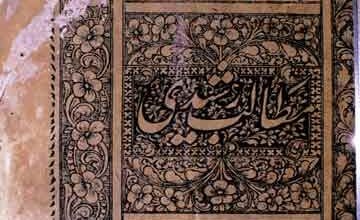 مطالب رشیدی